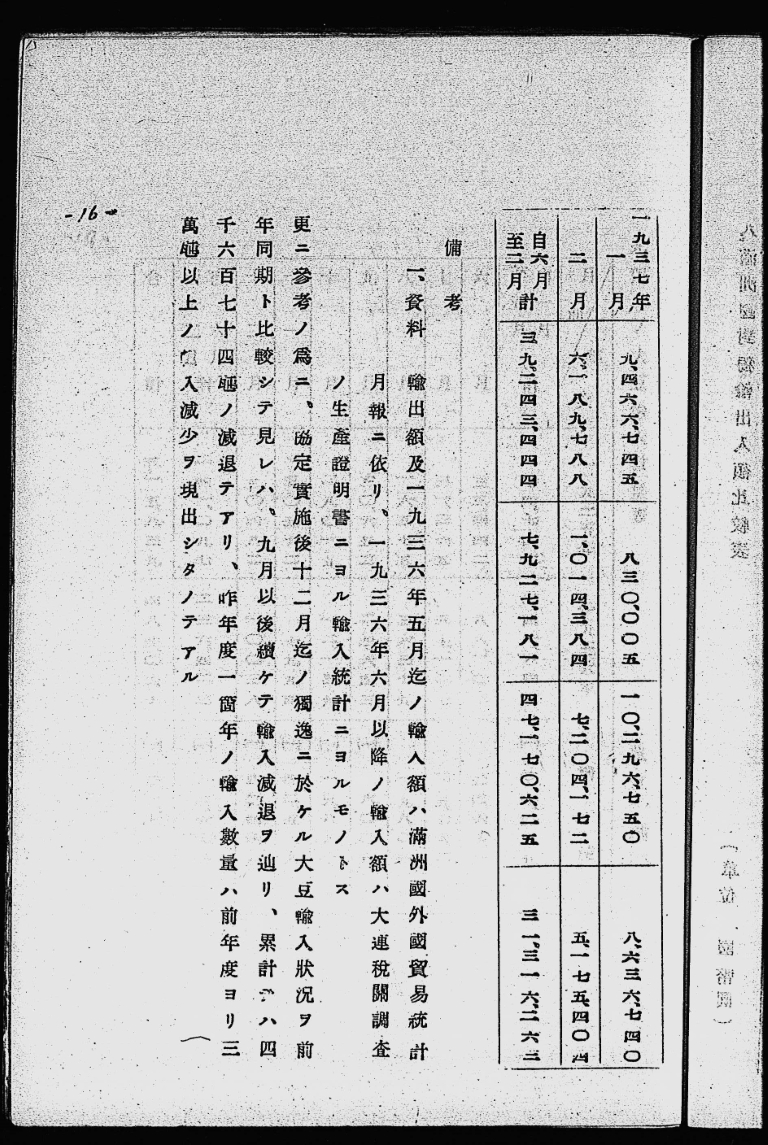 一九三七年
一月 九、四六六、七四五 八三〇、〇〇五 一〇、二九六、七五〇 八、六三六、七四〇
二月 六、一八九、七八八 一、〇一四、三八四 七、二〇四、一七二 五、一七五、四〇四
自六月
至二月計 三九、二四三、四四四 七、九二七、一八一 四七、一七〇、六二五 三一、三一六、二六三
備考
一、資料 輸出額及一九三六年五月迄ノ輸入額ハ滿洲國外國貿易統計
月報ニ依リ、一九三六年六月以降ノ輸入額ハ大連稅關調査
ノ生產證明書ニヨル輸入統計ニヨルモノトス
更ニ參考ノ爲ニ、協定實施後十二月迄ノ獨逸ニ於ケル大豆輸入狀況ヲ前
年同期ト比較シテ見レハ、九月以後續ケテ輸入減退ヲ辿リ、累計テハ四
千六百七十四瓲ノ減退テアリ、昨年度一箇年ノ輸入數量ハ前年度ヨリ三
萬瓲以上ノ入減少ヲ現出シタノテアル
-16-